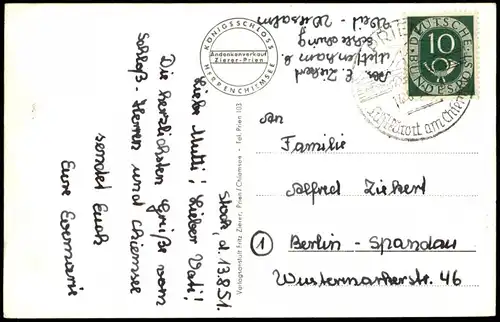 Stock, d. 13.8.51.
Liebe Mutti! Lieber Vati!
Die herzlichsten Grüße vom
Schloß-Herren und Chiemsee
sendet Euch
Eure Evemarie
KÖNIGSSCHLOSS
Andenkenverkauf
Zierer-Prien
HERRENCHIEMSEE
Verlagsanstalt Fritz Zierer, Prien/Chiemsee - Tel. Prien 103
Abs. E. Ziekert
DEUTSCHE
10
BUNDESPOST
Luftkurort am Chiemsee
An
Familie
Alfred Ziekert
1 Berlin - Spandau
Wustermarkerstr. 46